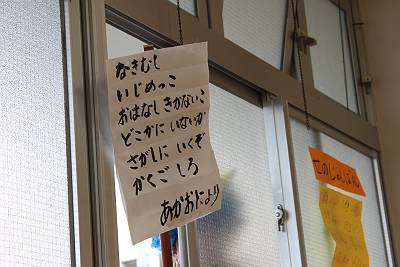 なきむし
いじめっこ
おはなし きかないこ
どこかに いないか
さがしに いくぞ
かくご しろ
あかおにより
せのじゅんばん